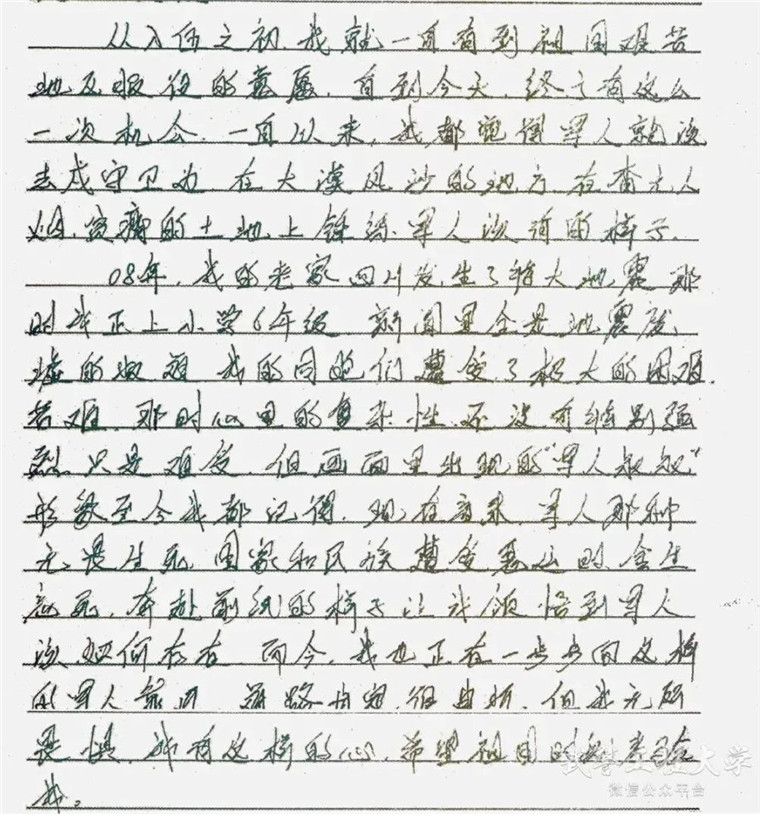 从入伍之初,我就一直有到祖国艰苦
地区服役的意愿,直到今天,终于有这么
一次机会.一直以来,我都觉得军人就该
去戍守卫边 在大漠风沙的地方 在杳无人
烟,贫瘠的土地上锤练军人该有的样子.
08年,我的老家四川发生了特大地震 那
时我正上小学6年级 新闻里全是地震废
墟的报道 我的同胞们遭受了极大的困难
苦难.那时心里的复杂性还没有特别强
烈 只是难受.但画面里出现的"军人叔叔"
形象至今我都记得.现在看来 军人那种
无畏生死 国家和民族遭受恶运时舍生
忘死,奔赴前线的样子让我领悟到军人
该如何存在 而今,我也正在一步步向这样
的军人靠近 但我无所
畏惧.我有这样的心,希望祖国时刻考验
我。
武警工程大学
微信公众平台